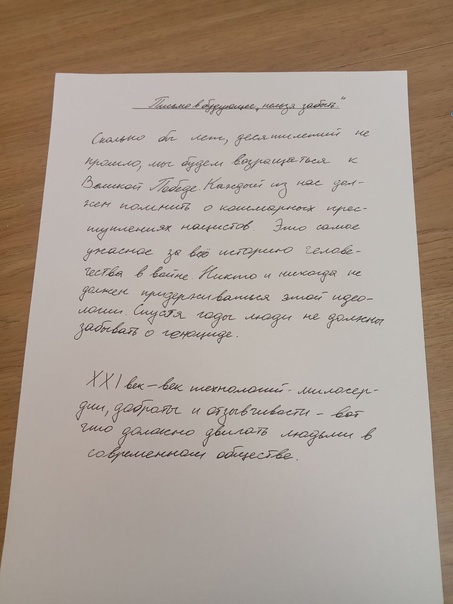 "Письмо в будующее, нельзя забыть"
Сколько бы лет, десятилетий не
прошло, мы будем возращаться к
Великой Победе. Каждый из нас дол-
жен помнить о кошмарных прес-
туплениях нацистов. Это самое
ужасное за всю историю челове-
чества в войне. Никто и никогда не
должен придерживаться этой идео-
логии. Спустя годы люди не должны
забывать о геноциде.
XXI век - век технологий - милосер-
дии, доброты и отзывчивости - вот
что должно двигать людьми в
современном обществе.